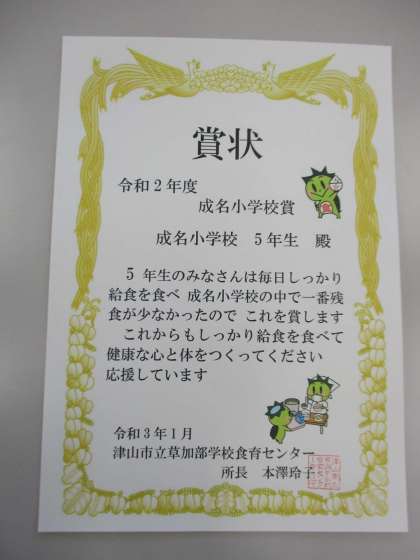 賞状
令和2年度
成名小学校賞
成名小学校 5年生 殿
5年生のみなさんは毎日しっかり
給食を食べ 成名小学校の中で一番残
食が少なかったので これを賞します
これからもしっかり給食を食べて
健康な心と体をつくってください
応援しています
令和3年1月
津山市立草加部学校食育センター
所長 本澤玲子